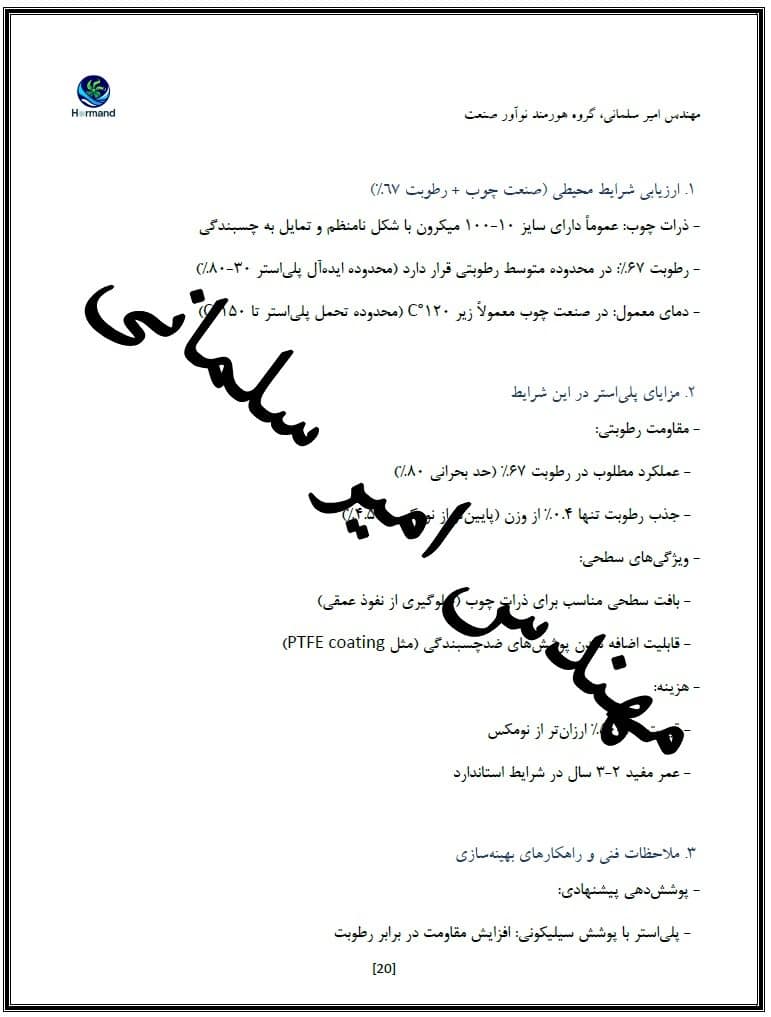 Hormand
مهندس امیر سلمانی، گروه هورمند نوآور صنعت
۱. ارزیابی شرایط محیطی (صنعت چوب + رطوبت ۶۷٪)
- ذرات چوب: عموماً دارای سایز ۱۰-۱۰۰ میکرون با شکل نامنظم و تمایل به چسبندگی
- رطوبت ۶۷٪: در محدوده متوسط رطوبتی قرار دارد (محدوده ایده‌آل پلی‌استر ۳۰-۸۰٪)
- دمای معمول: در صنعت چوب معمولاً زیر ۱۲۰°C (محدوده تحمل پلی‌استر تا ۱۵۰°C)
۲. مزایای پلی‌استر در این شرایط
- مقاومت رطوبتی:
- عملکرد مطلوب در رطوبت ۶۷٪ (حد بحرانی ۸۰٪)
- جذب رطوبت تنها ۰.۴٪ از وزن (پایین‌تر از
- ویژگی‌های سطحی:
- بافت سطحی مناسب برای ذرات چوب (جلوگیری از نفوذ عمقی)
- قابلیت اضافه پوشش‌های ضدچسبندگی (مثل PTFE coating)
- هزینه:
- ارزان‌تر از نومکس
- عمر مفید ۲-۳ سال در شرایط استاندارد
۳. ملاحظات فنی و راهکارهای بهینه‌سازی
- پوشش‌دهی پیشنهادی:
- پلی‌استر با پوشش سیلیکونی: افزایش مقاومت در برابر رطوبت
[20]
مهندس امیر سلمانی